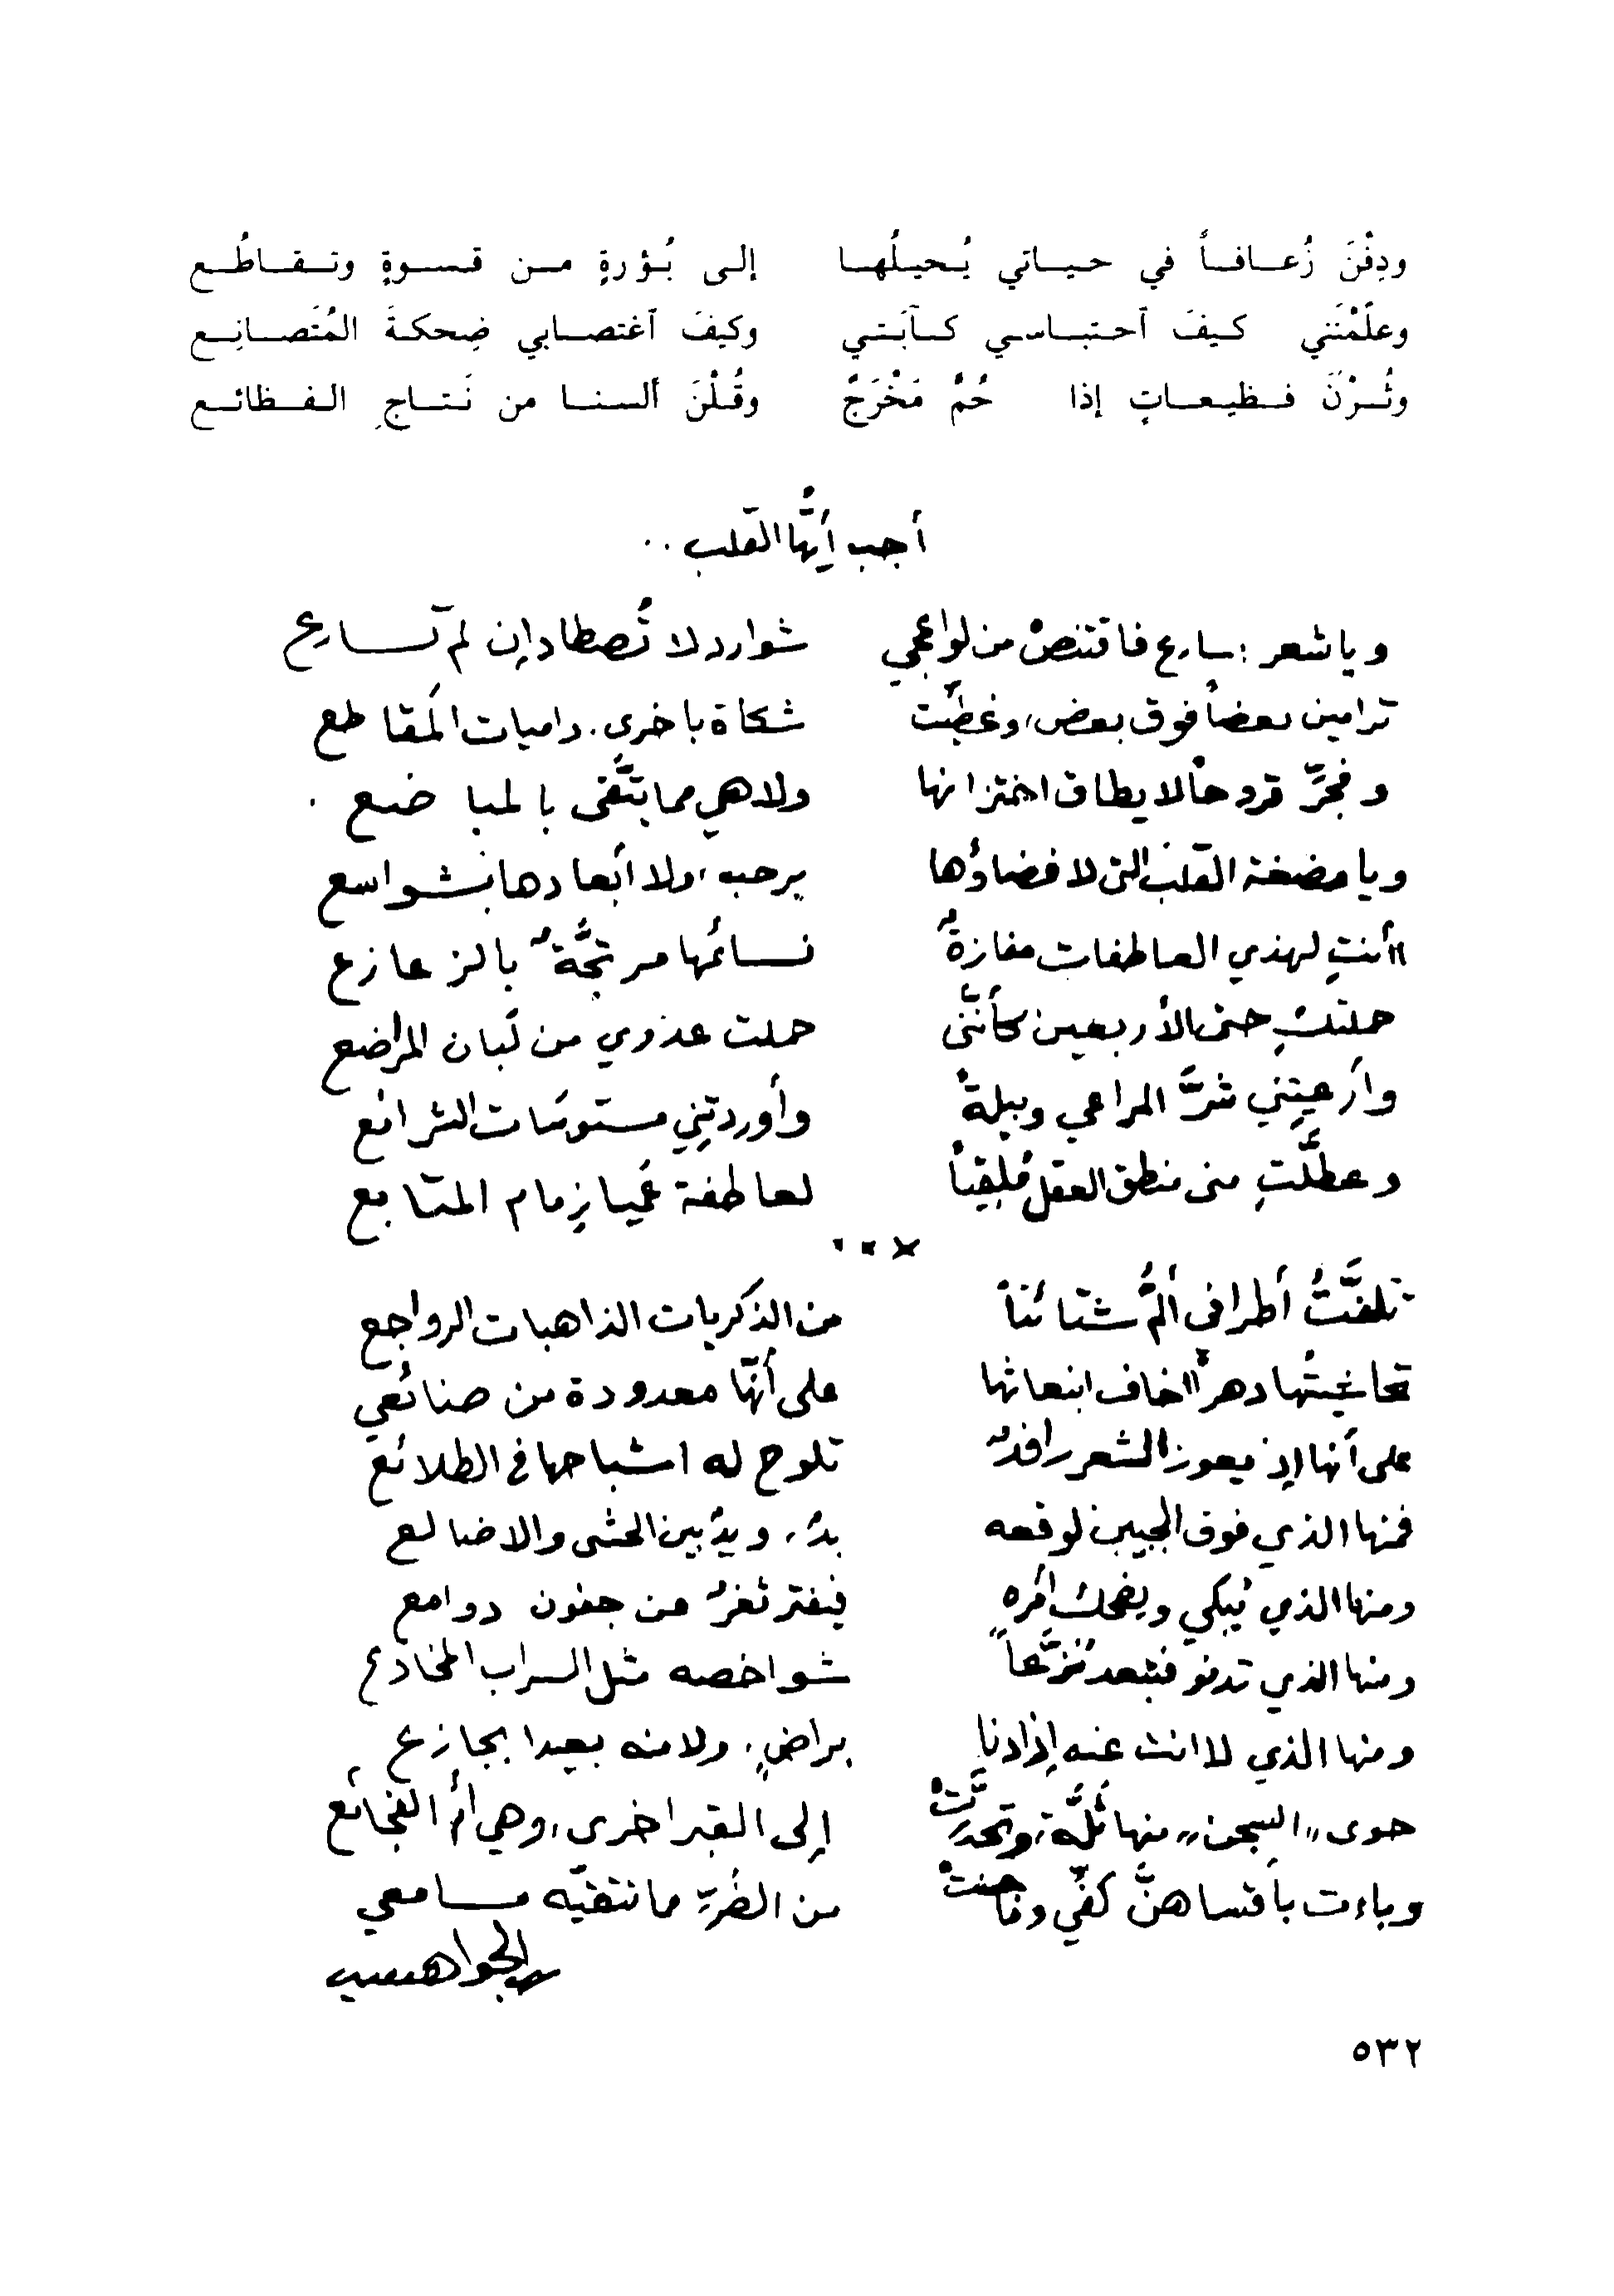 ودِفْنَ زُعـافـاً في حـيـاتي يُـحيـلُهـا إلـى بُـؤرةٍ مـن قـسـوةٍ وتـقـاطُـع
وعلّمْنَني كـيـفَ آحـتـبـاسـي كـآبَـتـي وكيفَ آغتصـابي ضِحكـةَ المُتَصـانِـع
وثُـرْنَ فـظيـعـاتٍ إذا حُمَّ مَخْرَجٌ وقُـلْنَ ألسنـا من نَـتـاجِ الـفـظائـع
أجب أيُّها القلب ..
ويا شعر : سارع فاقتنصْ من لواعجي شوارد لا تُصطاد إن لم تسارع
ترامين بعضاً فوق بعض، وغطيّت شكاة باخرى. داميات المَقاطع
وفجرَّ قروحاً لا يطاق اختزانها ولا هي مما يتَّقى بالمباضع .
ويا مضغة القلب التى لا فضاؤُها برحبه، ولا أبعادها بشواسع
أأنتِ لهذي العاطفات مفازةٌ نسائمُها مرتجَّةٌ بالزعازع
حملتكِ حتى الأربعين كأنّني حملت عدوي من لَبان المراضع
وأرعيتِني شرَّ المراعي وبيلةً وأوردتِني مستوبَات الشرائع
وعطَّلّتِ منى منطق العقل مُلقِياً لعاطفة عَميا زِمام المتابع
× . .
تلفَّتُ أطرافى ألمُّ شتائتاً من الذكريات الذاهبات الرواجع
تحاشيتُها دهراً اخاف انبعاثها على أنّها معدودة من صنائعي
على أنها إذ يعوز الشعر رافدٌ تلوح له اشباحها فى الطلائع
فمنها الذي فوق الجبين لوقعه يدٌ، ويدٌ بين الحشى والاضالع
ومنها الذي يُبكي ويضحك أمره فيفتر ثغرٌ من جفون دوامع
ومنها الذي تدنو فتبعد نُزَّعاً شواخصه مثل السراب المخادع
ومنها الذي لا انت عنه إذا دنا براضٍ، ولا منه بعيدا بجازع
حوى "السجن" منها ثُلَّة، وتحدَّرتْ إلى القبر اخرى، وهي أمُّ الفجائع
وباءت بأقساهنَّ كفّي وما جنتْ من الضُرِّ مما تتقيّه مسامعي
الجواهري
٥٣٢